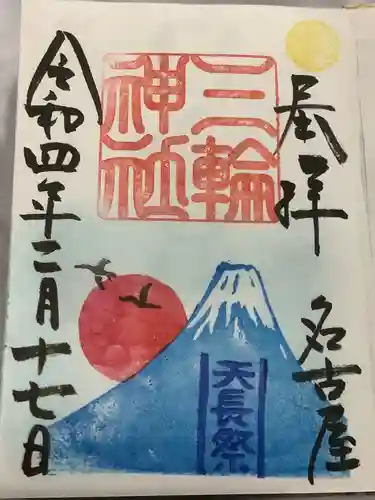 奉拝
名古屋
三輪
神社
天長祭
令和四年二月十七日